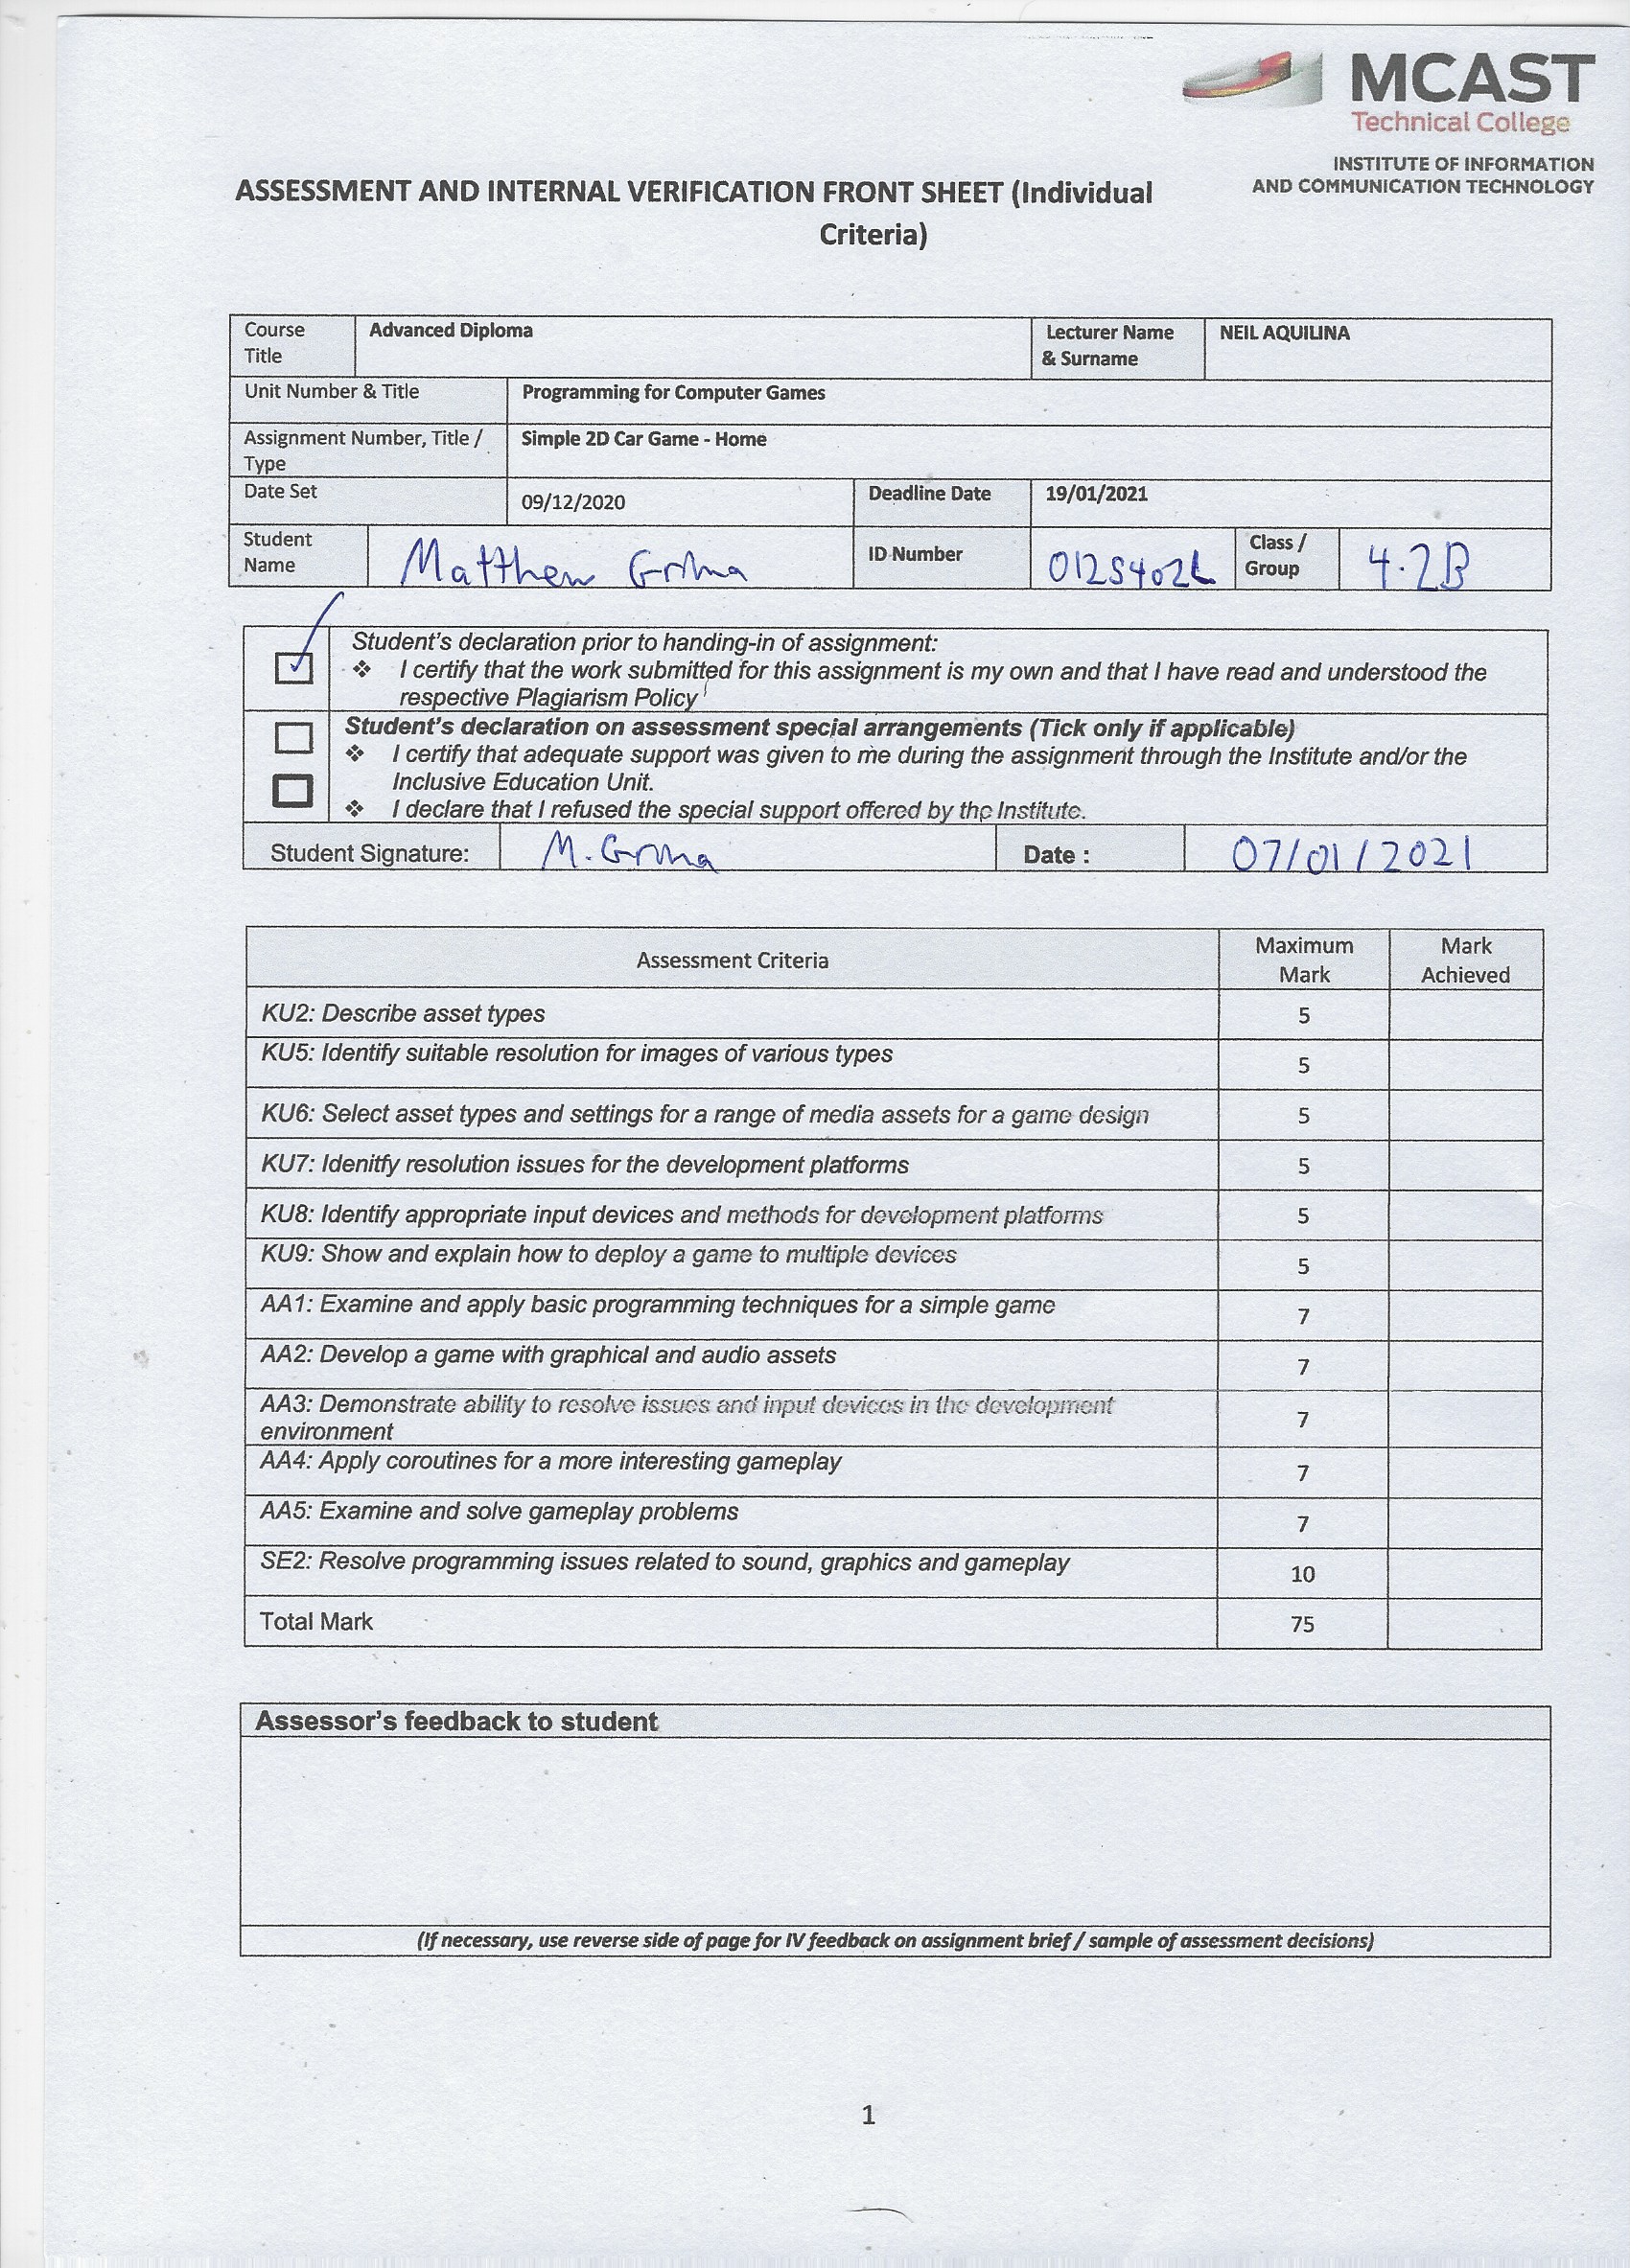 MCAST
Technical College
INSTITUTE OF INFORMATION
AND COMMUNICATION TECHNOLOGY
ASSESSMENT AND INTERNAL VERIFICATION FRONT SHEET (Individual
Criteria)
Course Title Advanced Diploma Lecturer Name & Surname NEIL AQUILINA
Unit Number & Title Programming for Computer Games
Assignment Number, Title / Type Simple 2D Car Game - Home
Date Set 09/12/2020 Deadline Date 19/01/2021
Student Name Matthew Grima ID Number 0125402L Class / Group 4.2B
Student's declaration prior to handing-in of assignment:
❖ I certify that the work submitted for this assignment is my own and that I have read and understood the
respective Plagiarism Policy
Student's declaration on assessment special arrangements (Tick only if applicable)
❖ I certify that adequate support was given to me during the assignment through the Institute and/or the
Inclusive Education Unit.
❖ I declare that I refused the special support offered by the Institute.
Student Signature: M. Grima Date : 07/01/2021
Assessment Criteria Maximum Mark Mark Achieved
KU2: Describe asset types 5
KU5: Identify suitable resolution for images of various types 5
KU6: Select asset types and settings for a range of media assets for a game design 5
KU7: Idenitfy resolution issues for the development platforms 5
KU8: Identify appropriate input devices and methods for development platforms 5
KU9: Show and explain how to deploy a game to multiple devices 5
AA1: Examine and apply basic programming techniques for a simple game 7
AA2: Develop a game with graphical and audio assets 7
AA3: Demonstrate ability to resolve issues and input devices in the development
environment 7
AA4: Apply coroutines for a more interesting gameplay 7
AA5: Examine and solve gameplay problems 7
SE2: Resolve programming issues related to sound, graphics and gameplay 10
Total Mark 75
Assessor's feedback to student
(If necessary, use reverse side of page for IV feedback on assignment brief / sample of assessment decisions)
1